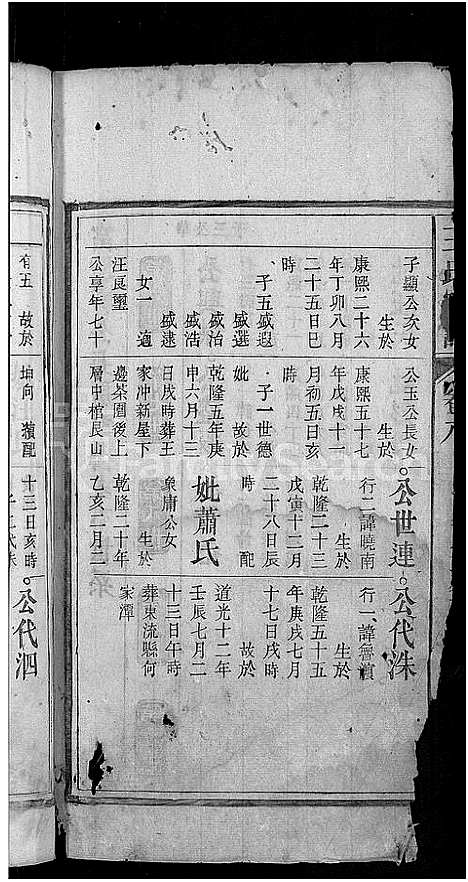 子顯公次女
生於
康熙二十六
年丁卯八月
二十五日巳
時
子五盛瑕
盛選
盛治
盛浩
盛逮
女一 適
汪良璽
公享年七十
公玉公長女
生於
康熙五十七
年戊戌十一
月初五日亥
時
子一世德
妣 故於
乾隆五年庚
申六月十三
日戌時葬王
家冲新屋下
邊茶園後上
層中棺艮山
公世連
行二諱曉南
生於
乾隆二十三
戊寅十二月
二十八日辰
時 配
妣蕭氏
衆庸公女
生於
乾隆二十年
乙亥二月二
公代洙
行一諱魯濱
生於
乾隆五十五
年庚戌七月
十七日戌時
故於
道光十二年
壬辰七月二
十三日午時
葬東流縣何
家潭
有五 故於
坤向 獺配
十三日亥時
公代泗